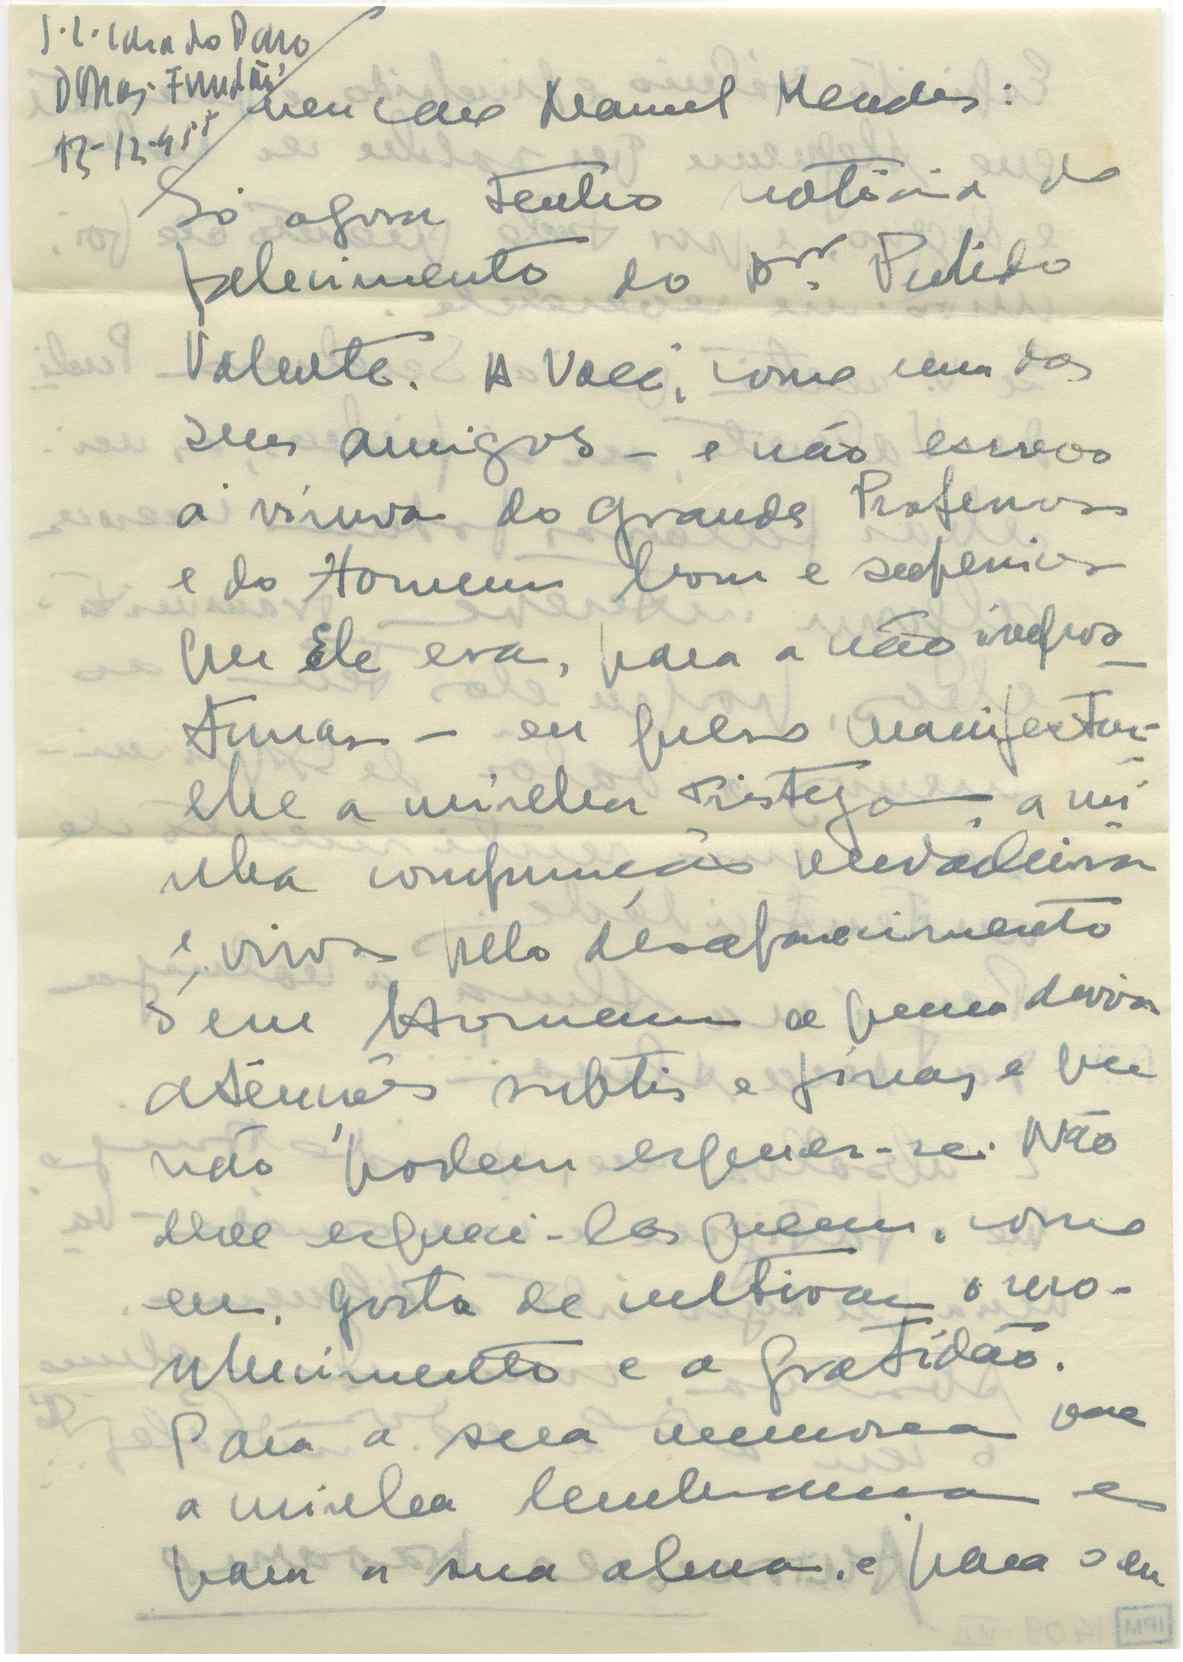 Donas-Fundão
13-12-955
Meu caro Manuel Mendes:
Só agora tenho notícia do
falecimento do Dr. Pulido
Valente. A Você, como um dos
seus amigos – e não escrevo
à viuva do grande Professor
e do Homem bom e superior
que Ele era, para a não impor-
tunar – eu quero manifestar-
lhe a minha tristeza, a mi
nha compunção verdadeira
e viva pelo desaparecimento
d'um Homem a quem devia
atenções subtis e finas e que
não podem esquecer-se. Não
deve esquecê-las quem, como
eu, gosta de cultivar o reco-
nhecimento e a gratidão.
Para a sua memoria vae
a minha lembrança e
para a sua alma, e para o seu
IPM